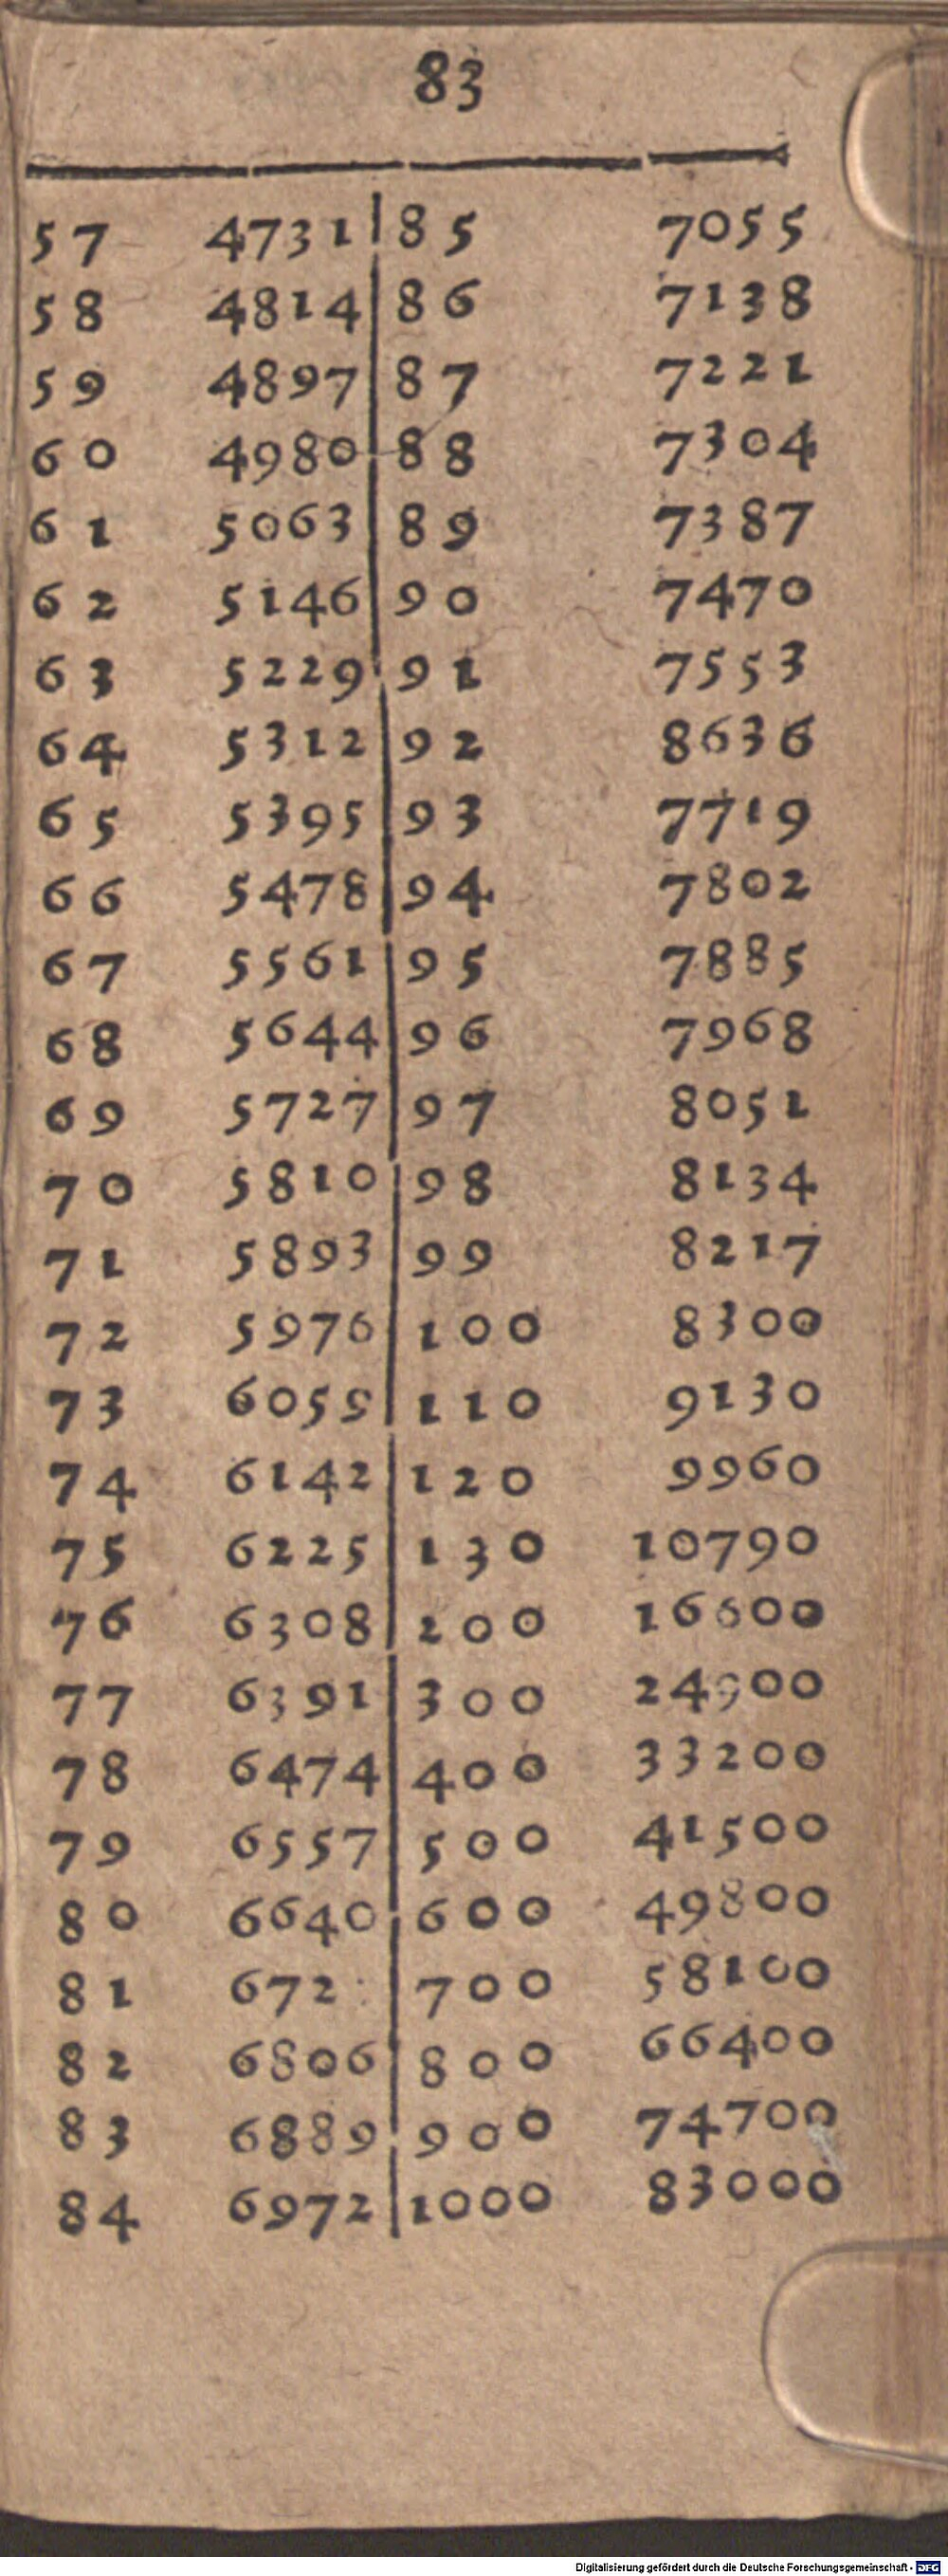 83
57 4731 85 7055
58 4814 86 7138
59 4897 87 7221
60 4980 88 7304
61 5063 89 7387
62 5146 90 7470
63 5229 91 7553
64 5312 92 8636
65 5395 93 7719
66 5478 94 7802
67 5561 95 7885
68 5644 96 7968
69 5727 97 8051
70 5810 98 8134
71 5893 99 8217
72 5976 100 8300
73 6059 110 9130
74 6142 120 9960
75 6225 130 10790
76 6308 200 16600
77 6391 300 24900
78 6474 400 33200
79 6557 500 41500
80 6640 600 49800
81 672 700 58100
82 6806 800 66400
83 6889 900 74700
84 6972 1000 83000
Digitalisierung gefördert durch die Deutsche Forschungsgemeinschaft - DFG